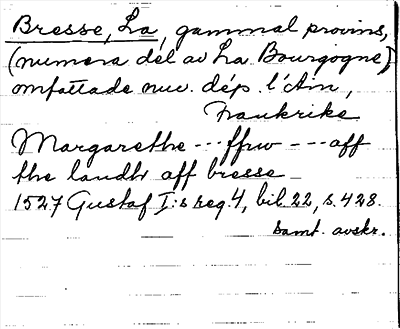 Bresse, La, gammal provins,
(numera del av La Bourgogne),
omfattade nuv. dép. l'Ain,
Frankrike
Margarethe --- ffrw --- aff
the landh aff bresse
1527 Gustaf I:s reg. 4, bil. 22, s. 428.
samt. avskr.